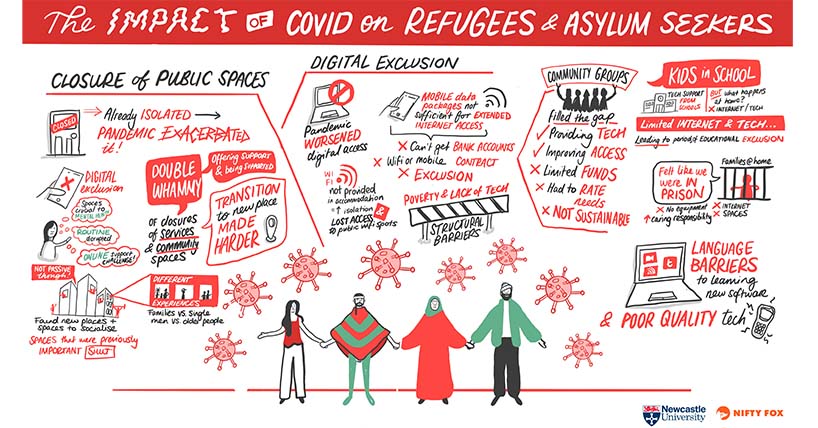 The IMPACT OF COVID on REFUGEES & ASYLUM SEEKERS
CLOSURE of PUBLIC SPACES
CLOSED
Already ISOLATED
PANDEMIC EXACERBATED
it!
DIGITAL
exclusion
Spaces
crucial to
MENTAL HEALTH
ROUTINE
disrupted
ONLINE support
CHALLENGE!
DOUBLE
WHAMMY
Offering SUPPORT
& being SUPPORTED
of closures
of services
& community
spaces
TRANSITION
to new place
MADE
HARDER
NOT PASSIVE
though!
Found new places +
spaces to socialise
SPACES that were previously
IMPORTANT SHUT
DIFFERENT
EXPERIENCES
Families vs. single
men vs. older people
DIGITAL EXCLUSION
Pandemic
WORSENED
digital access
MOBILE data
packages not
sufficient for EXTENDED
INTERNET ACCESS
Can't get BANK ACCOUNTS
Wifi or mobile CONTRACT
EXCLUSION
WI
FI
not provided
in accommodation
↑ isolation
LOST ACCESS
to public wifi spots
POVERTY & LACK of TECH
STRUCTURAL
BARRIERS
COMMUNITY GROUPS
filled the gap
Providing TECH
Improving ACCESS
Limited FUNDS
Had to RATE
needs
NOT SUSTAINABLE
KIDS in SCHOOL
TECH SUPPORT
FROM
SCHOOLS
BUT what happens
at home?
INTERNET / TECH
Limited INTERNET & TECH...
Leading to period of EDUCATIONAL EXCLUSION
Felt like we
were IN
PRISON
Families@home
No equipment
↑ caring responsibility
INTERNET
SPACES
LANGUAGE
BARRIERS
to learning
new software
& POOR QUALITY tech
Newcastle
University
NIFTY FOX